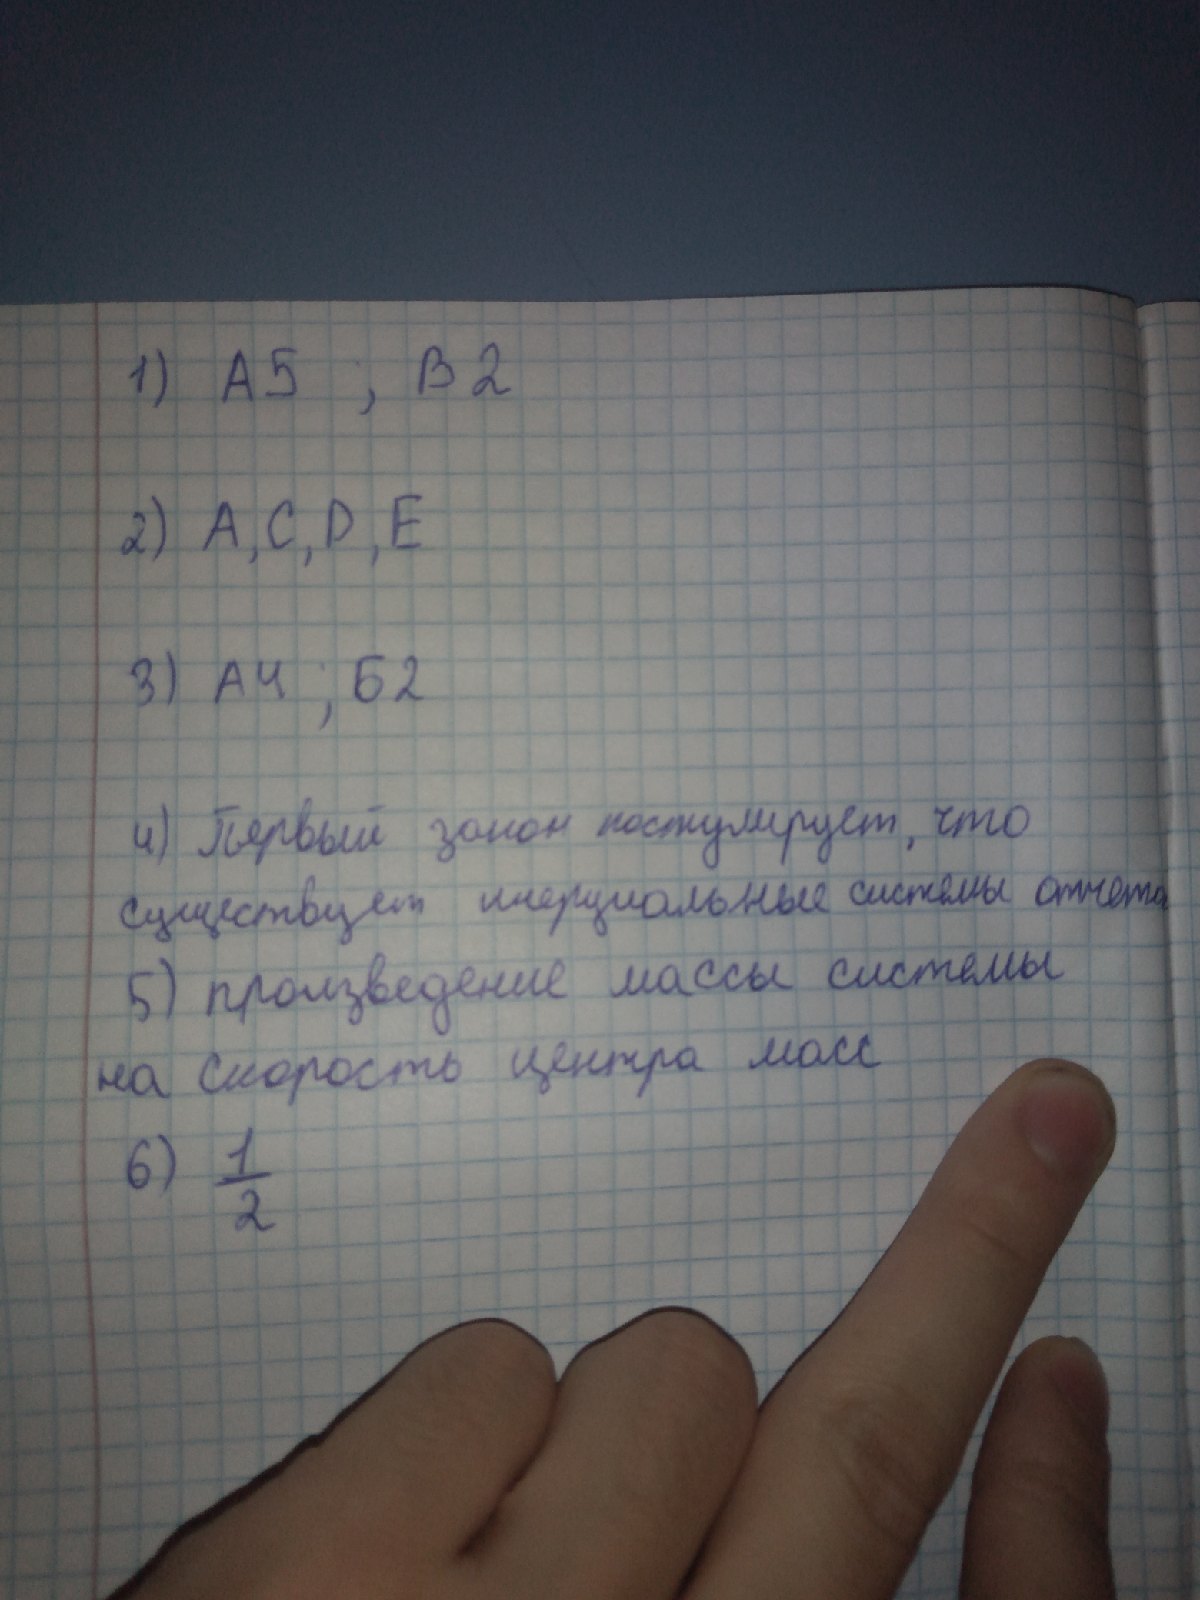 1) А5 ; В2
2) A, C, D, E
3) А4 ; Б2
4) Первый закон постулирует, что
существует инерциальные системы отчета
5) произведение массы системы
на скорость центра масс
6) 1/2